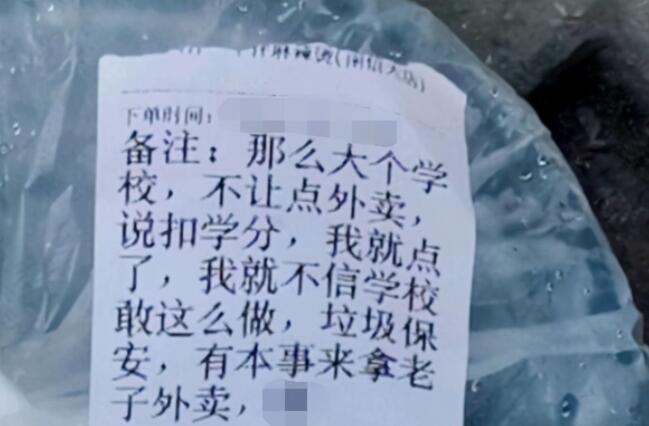 麻辣烫(南信大店)
下单时间:
备注：那么大个学
校，不让点外卖，
说扣学分，我就点
了，我就不信学校
敢这么做，垃圾保
安，有本事来拿老
子外卖，